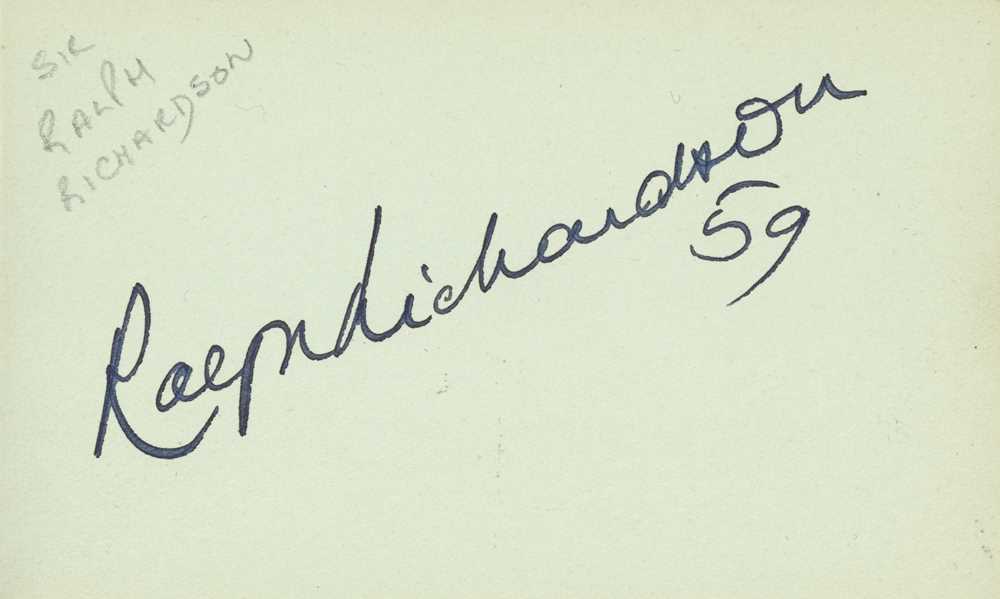 SIR
RALPH
RICHARDSON
Ralph Richardson
59